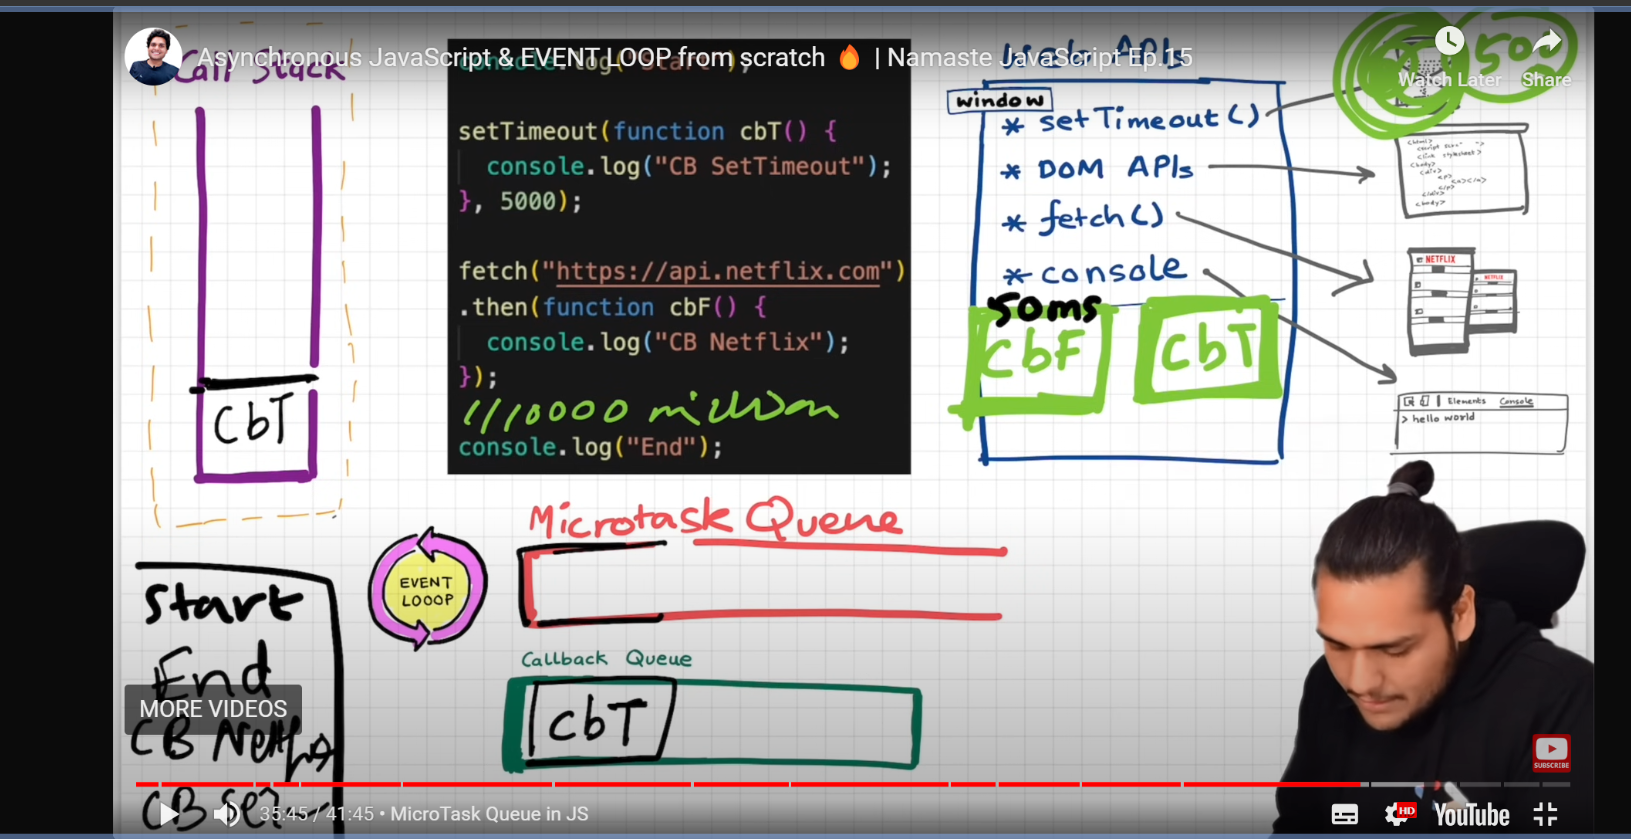 Asynchronous JavaScript & EVENT LOOP from scratch 🔥 | Namaste JavaScript Ep.15
Watch Later
Share
Call Stack
CbT
console.log("Start");
setTimeout(function cbT() {
console.log("CB SetTimeout");
}, 5000);
fetch("https://api.netflix.com")
.then(function cbF() {
console.log("CB Netflix");
});
million
console.log("End");
window
* setTimeout()
* DOM APIs
* fetch()
* console
50ms
CbF
CbT
NETFLIX
NETFLIX
Elements Console
> hello world
EVENT
LOOOP
Microtask Queue
Callback Queue
cbT
Start
End
MORE VIDEOS
35:45 / 41:45 • MicroTask Queue in JS
SUBSCRIBE
HD
YouTube